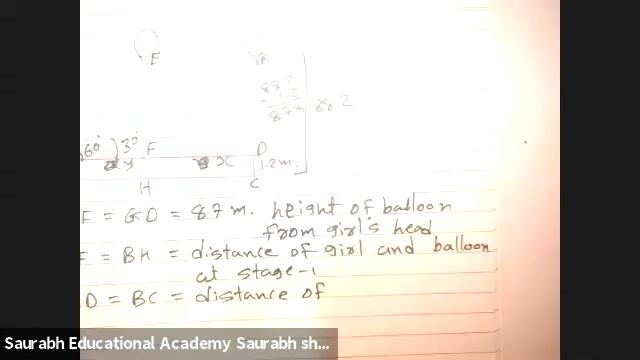 E
88.2
87m 88.2
60° 30° F D
y x 1.2m.
H C
E = GD = 87m. height of balloon
from girl's head
F = BH = distance of girl and balloon
at stage-1
D = BC = distance of
Saurabh Educational Academy Saurabh sh...